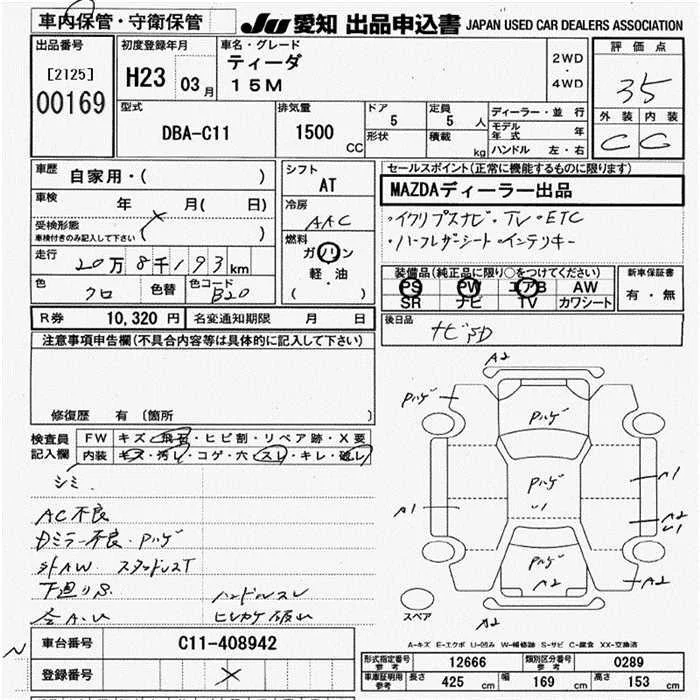 車内保管・守衛保管
JU 愛知 出品申込書 JAPAN USED CAR DEALERS ASSOCIATION
出品番号
[2125]
00169
初度登録年月
H23 03月
車名・グレード
ティーダ
15M
2WD
・
4WD
評価点
35
外装 内装
C C
型式
DBA-C11
排気量
1500
CC
ドア
5
定員
5 人
形状
積載
kg
ディーラー・並行
モデル年式 年
ハンドル 左・右
車歴
自家用・( )
車検
年 月( 日)
受検形態
車検付きのみ記入して下さい
( )
走行
20万8千193km
色
クロ
色替
色コード
B20
シフト
AT
冷房
AAC
燃料
ガソリン
軽・油
( )
セールスポイント(正常に機能するものに限ります)
MAZDAディーラー出品
・イクリプスナビ・TV・ETC
・ハーフレザーシート・インテリキー
装備品(純正品に限り○をつけてください)
PS PW エアB AW
SR ナビ TV カワシート
新車保証書
有・無
R券 10,320 円
名変通知期限 月 日
後日品
注意事項申告欄(不具合内容等は具体的に記入して下さい)
修復歴 有 (箇所 )
検査員
記入欄
FW キズ・飛石・ヒビ割・リペア跡・X要
内装 キズ・汚レ・コゲ・穴・スレ・キレ・破レ
シミ
AC不良
Dミラー不良・Pハゲ
外AW スタッドレスT
下廻りS
ハンドルスレ
全A.U
A2
Pハゲ
Pハゲ
Pハゲ
U1
A1
A1
A2
U1
Pハゲ
A2
A2
A2
スペア
A-キズ E-エクボ U-凹み W-補修跡 S-サビ C-腐食 XX-交換済
車台番号
C11-408942
登録番号
型式指定番号参考 12666
類別区分番号参考 0289
車庫証明用参考 長さ 425 cm 幅 169 cm 高さ 153 cm